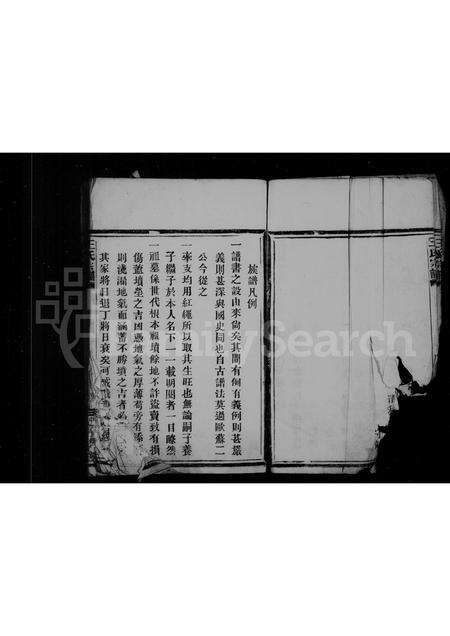 族譜凡例
一譜書之設由來尙矣其間有例有義例則甚嚴
義則甚深與國史同也自古譜法莫過歐蘇二
公今從之
一宗支均用紅繩所以取其生旺也無論嗣子養
子繼子於本人名下一一載明閱者一目瞭然
一祖墓係世代根本祖墳餘地不許盜賣致有損
傷蓋墳塋之吉因憑地氣之厚薄苟旁有
則洩漏地氣而涵蓄不勝墳之吉者
其家將日退丁將日衰矣可
王氏
FamilySearch